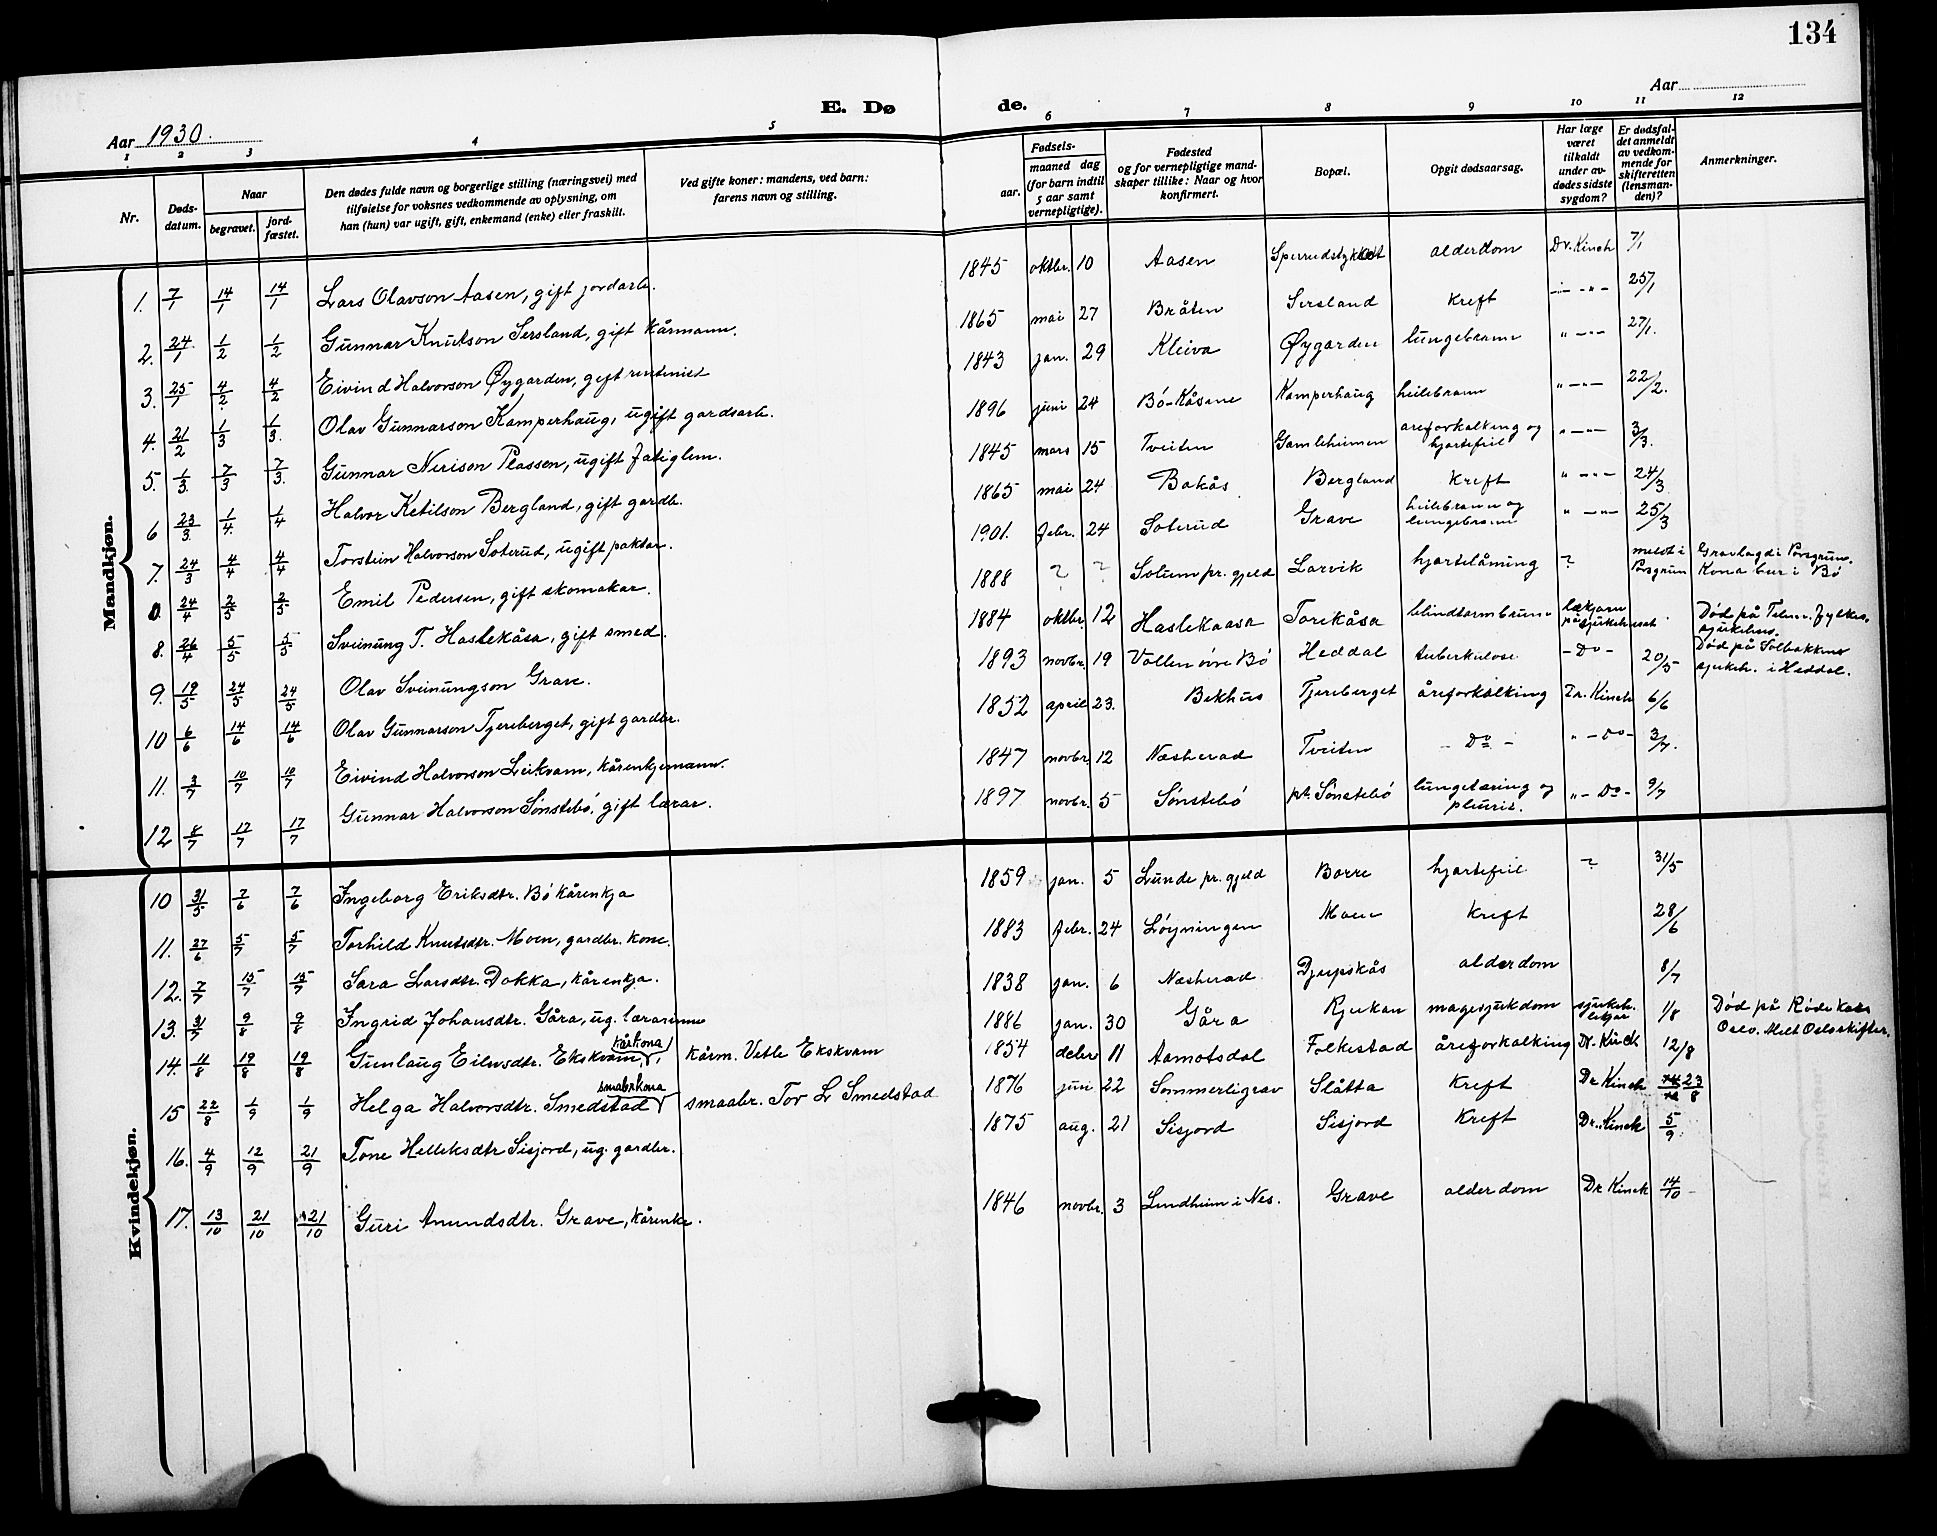 134
E. Dø de.
Aar 1930.
Aar
1 2 3 4 5 6 7 8 9 10 11 12
Nr.
Døds-datum.
Naar
begravet.
jord-fæstet.
Den dødes fulde navn og borgerlige stilling (næringsvei) med
tilføielse for voksnes vedkommende av oplysning, om
han (hun) var ugift, gift, enkemand (enke) eller fraskilt.
Ved gifte koner: mandens, ved barn:
farens navn og stilling.
Fødsels-
aar.
maaned dag
(for barn indtil
5 aar samt
vernepligtige).
Fødested
og for vernepligtige mand-
skaper tillike: Naar og hvor
konfirmert.
Bopæl.
Opgit dødsaarsag.
Har læge
været
tilkaldt
under av-
dødes sidste
sygdom?
Er dødsfal-
det anmeldt
av vedkom-
mende for
skifteretten
(lensman-
den)?
Anmerkninger.
Mandkjøn.
1. 7/1 14/1 14/1 Lars Olavson Aasen, gift jordarb. 1845 oktbr. 10 Aasen alderdom Dr. Kinck 7/1
2. 24/1 1/2 1/2 Gunnar Knutson Sersland, gift kårmann. 1865 mai 27 Bråten Sersland kreft - " - " - 25/1
3. 25/1 4/2 4/2 Eivind Halvorson Øygarden, gift rentenist 1843 jan. 29 Kleiva Øygarden lungebrann " - " - 27/1.
4. 21/2 1/3 1/3. Olav Gunnarson Kamperhaug, ugift gardsarb. 1896 juni 24 Bö-Kåsene Kamperhaug heilebrann " - " - 22/2.
5. 1/3. 7/3 7/3. Gunnar Nirison Plassen, ugift fatiglem. 1845 mars 15 Tveiten Gamleheimen areforkalking og hjartefeil " - " - 3/3.
6 23/3. 1/4. 1/4 Halvor Ketilson Bergland, gift gardbr. 1865 mai 24 Bakås Bergland kreft " - " - 24/3
7. 24/3 4/4 4/4 Torstein Halvorson Soterud, ugift paktar. 1901. febr. 24 Soterud Grave heilebrann og lungebrann " - " - 25/3
0. 24/4 2/5 2/5 Emil Pedersen, gift skomakar. 1888 ? ? Solum pr. gjeld Larvik hjartelåming ? meldt i Porsgrun Gravlagd i Porsgrun. Kona bur i Bö
8. 26/4 5/5 5/5 Sveinung T. Haslekåsa, gift smed. 1884 oktbr. 12 Haslekaasa Torekåsa blindtarmbrann Død på Telem. fylkes. sjukehus.
9. 19/5 24/5 24/5 Olav Sveinungson Grave. 1893 novbr. 19 Vollen övre Bö Heddal tuberkulose - Do - 20/5 Død på Solbakken sjukeh. i Heddal.
10 6/6 14/6 14/6 Olav Gunnarson Tjereberget, gift gardbr. 1852 april 23. Bekhus Tjereberget åreforkalking Dr. Kinck 6/6
11. 3/7 10/7 10/7 Eivind Halvorson Leikvam, kårenkjemann. 1847 novbr. 12 Nesherad Tveiten - Do - " - Do - 3/7.
12 8/7 17/7 17/7 Gunnar Halvorson Sönstebö, gift lærar. 1897 novbr. 5 Sönstebö pt. Sönstebö lungetæring og pleurit. " - Do - 9/7
Kvindekjøn.
10 31/5 7/6 7/6 Ingeborg Eriksdtr. Bö kårenkja 1859 jan. 5 Lunde pr. gjeld Borre hjartefeil ? 31/5
11. 27/6 5/7 5/7 Torhild Knutsdtr. Moen, gardbr. kone. 1883 febr. 24 Löyningen Moen kreft 28/6
12. 7/7 15/7 15/7 Sara Larsdtr. Dokka, kårenkja. 1838 jan. 6 Nesherad Djupskås alderdom 8/7
13. 31/7 9/8 9/8 Ingrid Johansdtr. Gåra, ug. lærarinne 1886 jan. 30 Gåra Rjukan magesjukdom sjukeh. lekjar 1/8 Død på Røde Kors Oslo. Melt Osloskifter.
14. 11/8 19/8 19/8 Gunlaug Eilevsdtr. Ekskvam, kårkona kårm. Vetle Ekskvam 1854 decbr 11 Aamotsdal Folkestad åreforkalking Dr. Kinck 12/8
15 22/8 1/9 1/9 Helga Halvorsdtr. Smedstad smabrkona smaabr. Tor L Smedstad 1876 juni 22 Sommerligrav Slåtta kreft Dr Kinck 23/8
16. 4/9 12/9 21/9 Tone Helleksdtr Sisjord, ug. gardbr. 1875 aug. 21 Sisjord Sisjord kreft Dr. Kinck 5/9.
17. 13/10 21/10 21/10 Guri Amundsdtr. Grave, kårenke. 1846 novbr. 3 Lindheim i Nes. Grave alderdom Dr Kinck 14/10